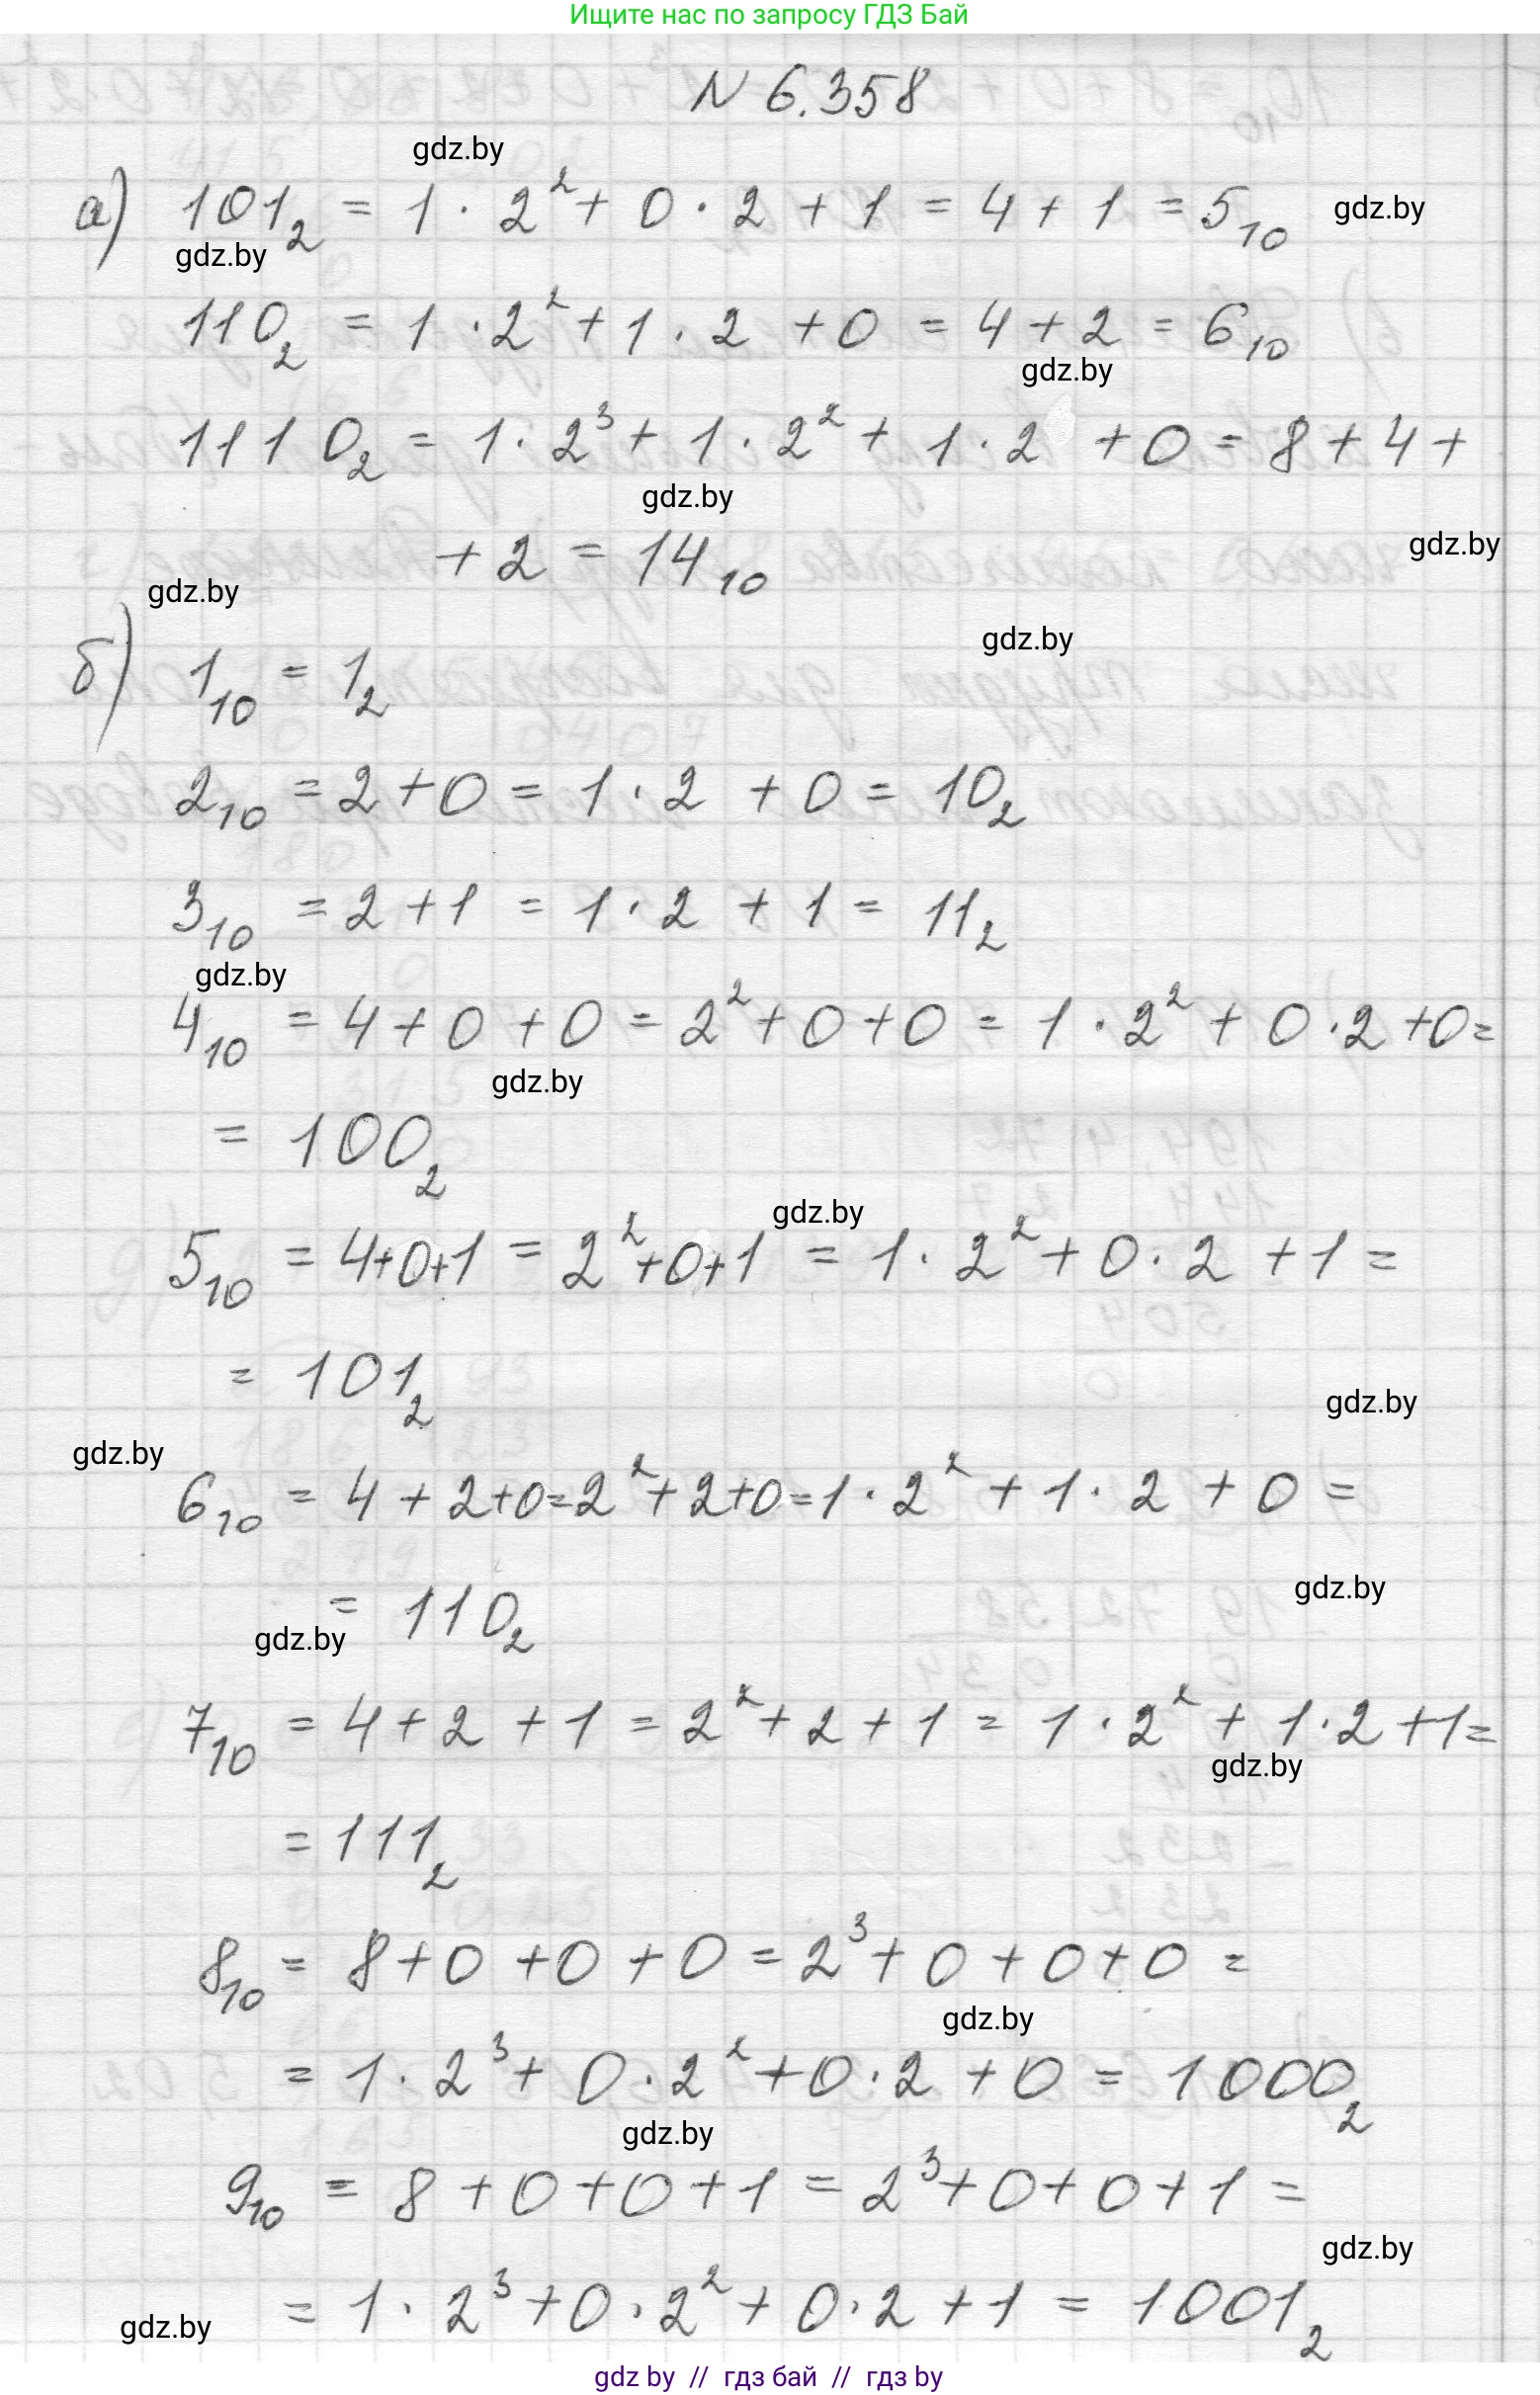 Ищите нас по запросу ГДЗ Бай
N 6.358
gdz.by
а) 101₂ = 1 · 2² + 0 · 2 + 1 = 4 + 1 = 5₁₀ gdz.by
gdz.by
110₂ = 1 · 2² + 1 · 2 + 0 = 4 + 2 = 6₁₀
gdz.by
1110₂ = 1 · 2³ + 1 · 2² + 1 · 2 + 0 = 8 + 4 +
gdz.by
+ 2 = 14₁₀ gdz.by
gdz.by
gdz.by
б) 1₁₀ = 1₂
2₁₀ = 2 + 0 = 1 · 2 + 0 = 10₂
3₁₀ = 2 + 1 = 1 · 2 + 1 = 11₂
gdz.by
4₁₀ = 4 + 0 + 0 = 2² + 0 + 0 = 1 · 2² + 0 · 2 + 0 =
gdz.by
= 100₂
gdz.by
5₁₀ = 4+0+1 = 2²+0+1 = 1 · 2² + 0 · 2 + 1 =
= 101₂
gdz.by
gdz.by
6₁₀ = 4 + 2+0=2²+2+0=1 · 2² + 1 · 2 + 0 =
gdz.by
= 110₂
gdz.by
7₁₀ = 4 + 2 + 1 = 2² + 2 + 1 = 1 · 2² + 1 · 2 + 1 =
gdz.by
= 111₂
8₁₀ = 8 + 0 + 0 + 0 = 2³ + 0 + 0 + 0 =
gdz.by
= 1 · 2³ + 0 · 2² + 0 · 2 + 0 = 1000₂
gdz.by
9₁₀ = 8 + 0 + 0 + 1 = 2³ + 0 + 0 + 1 =
gdz.by
= 1 · 2³ + 0 · 2² + 0 · 2 + 1 = 1001₂
gdz.by
gdz by // гдз бай // гдз by